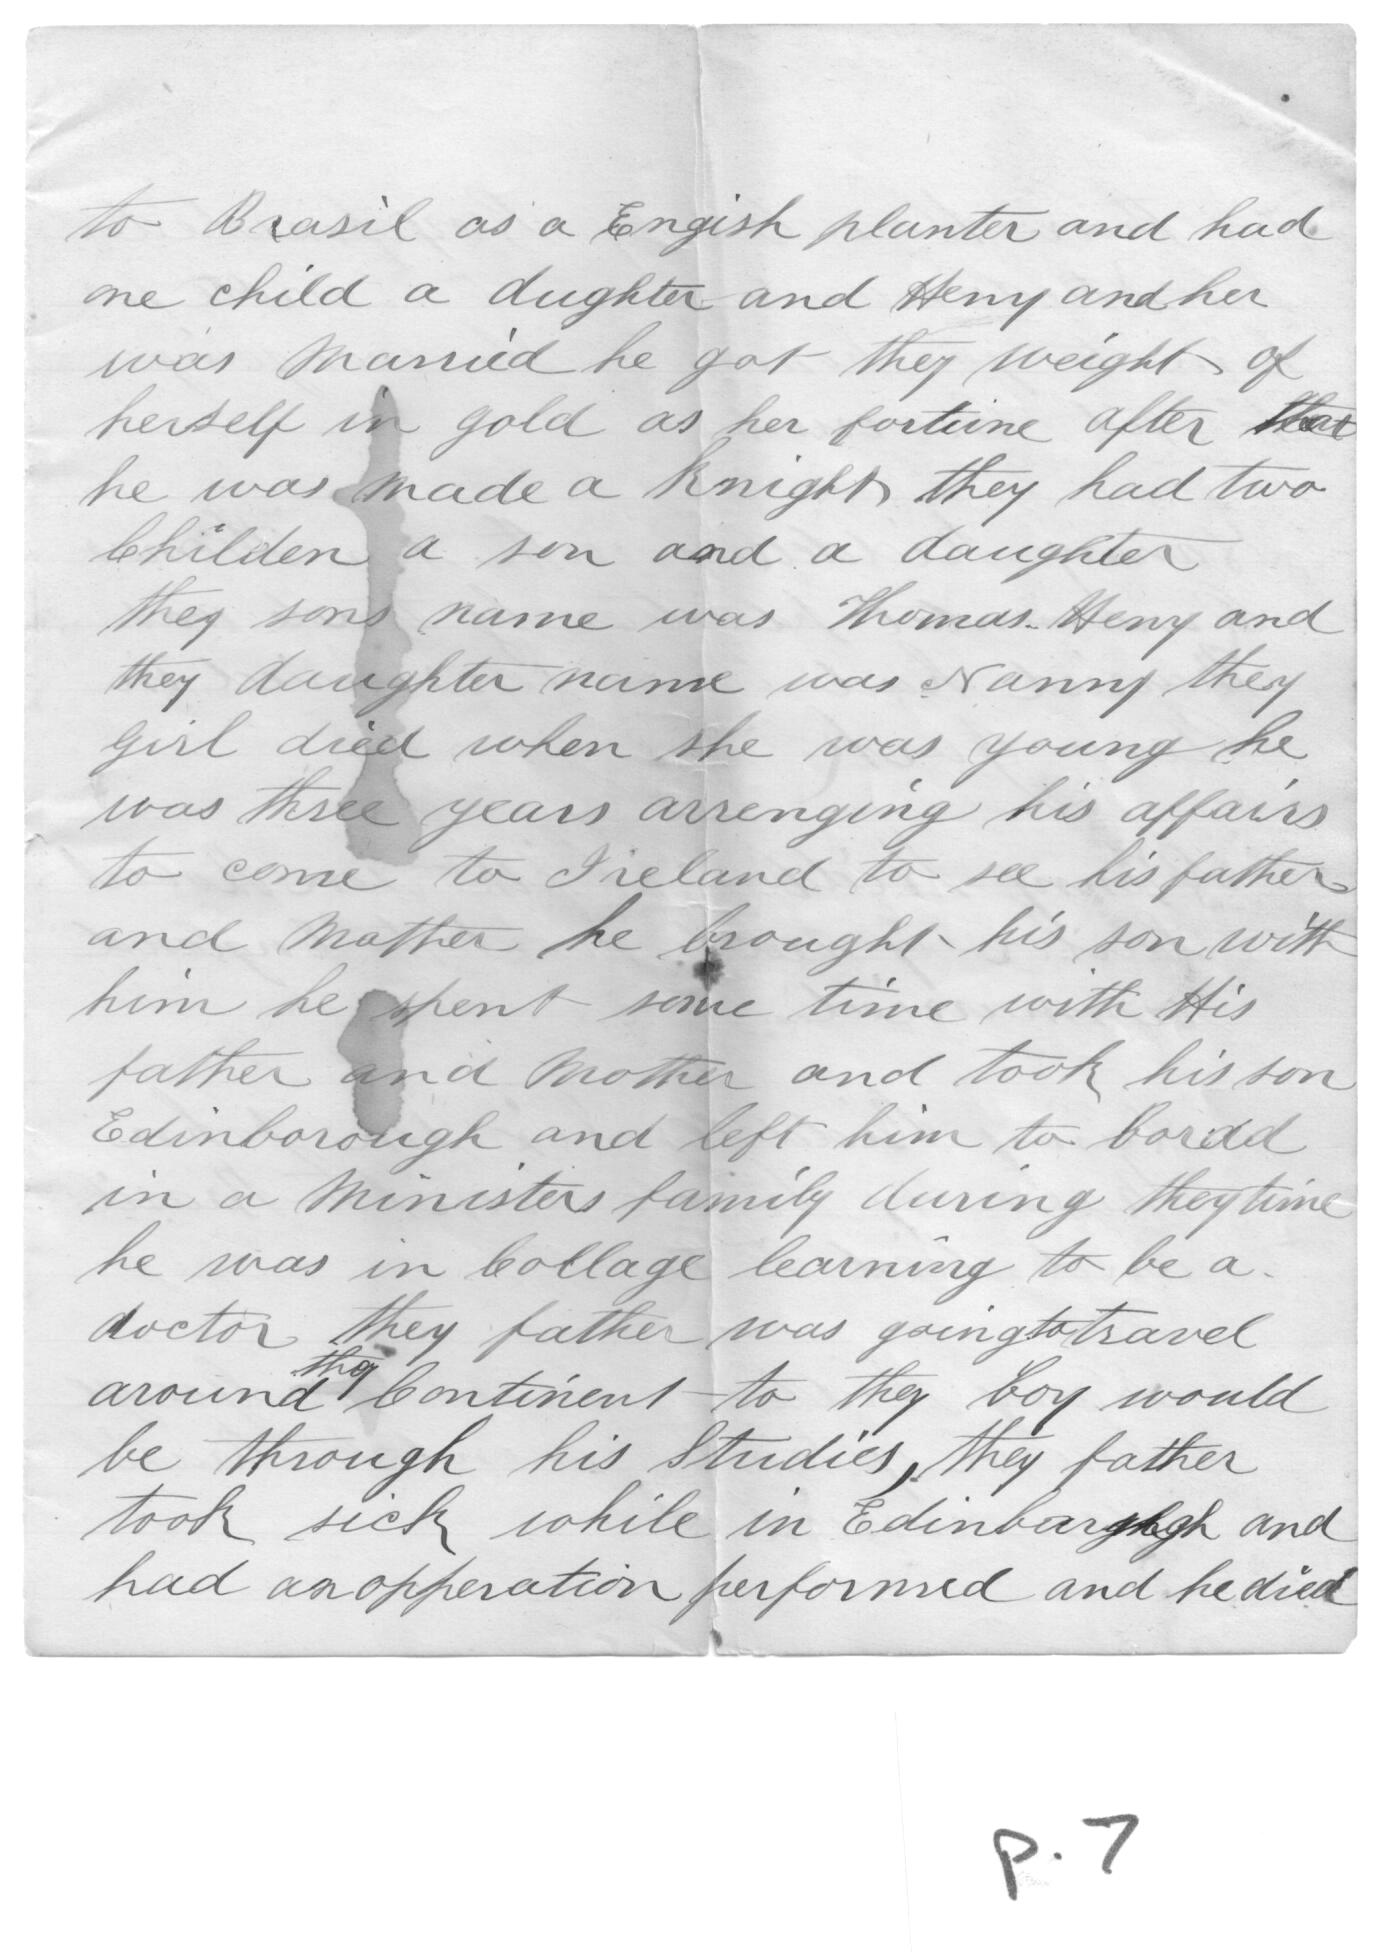 to Brasil as a Engish planter and had
one child a dughter and Heny and her
was Married he got they weight of
herself in gold as her fortune after that
he was made a Knight they had two
Childen a son and a daughter
they sons name was Thomas Heny and
they daughter name was Nanny they
girl died when she was young he
was three years arrenging his affairs
to come to Ireland to see his father
and Mother he brought his son with
him he spent some time with His
father and Mother and took his son
Edinborough and left him to bordd
in a Ministers family during they time
he was in Collage learning to be a
doctor they father was going to travel
around they Continent to they boy would
be through his Studies, they father
took sick while in and
had an opperation performed and he died
p. 7